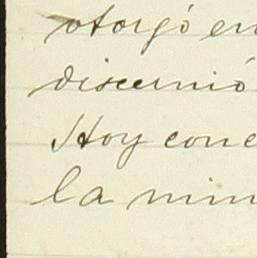 otorgó en
discernió
Hoy conc
la min